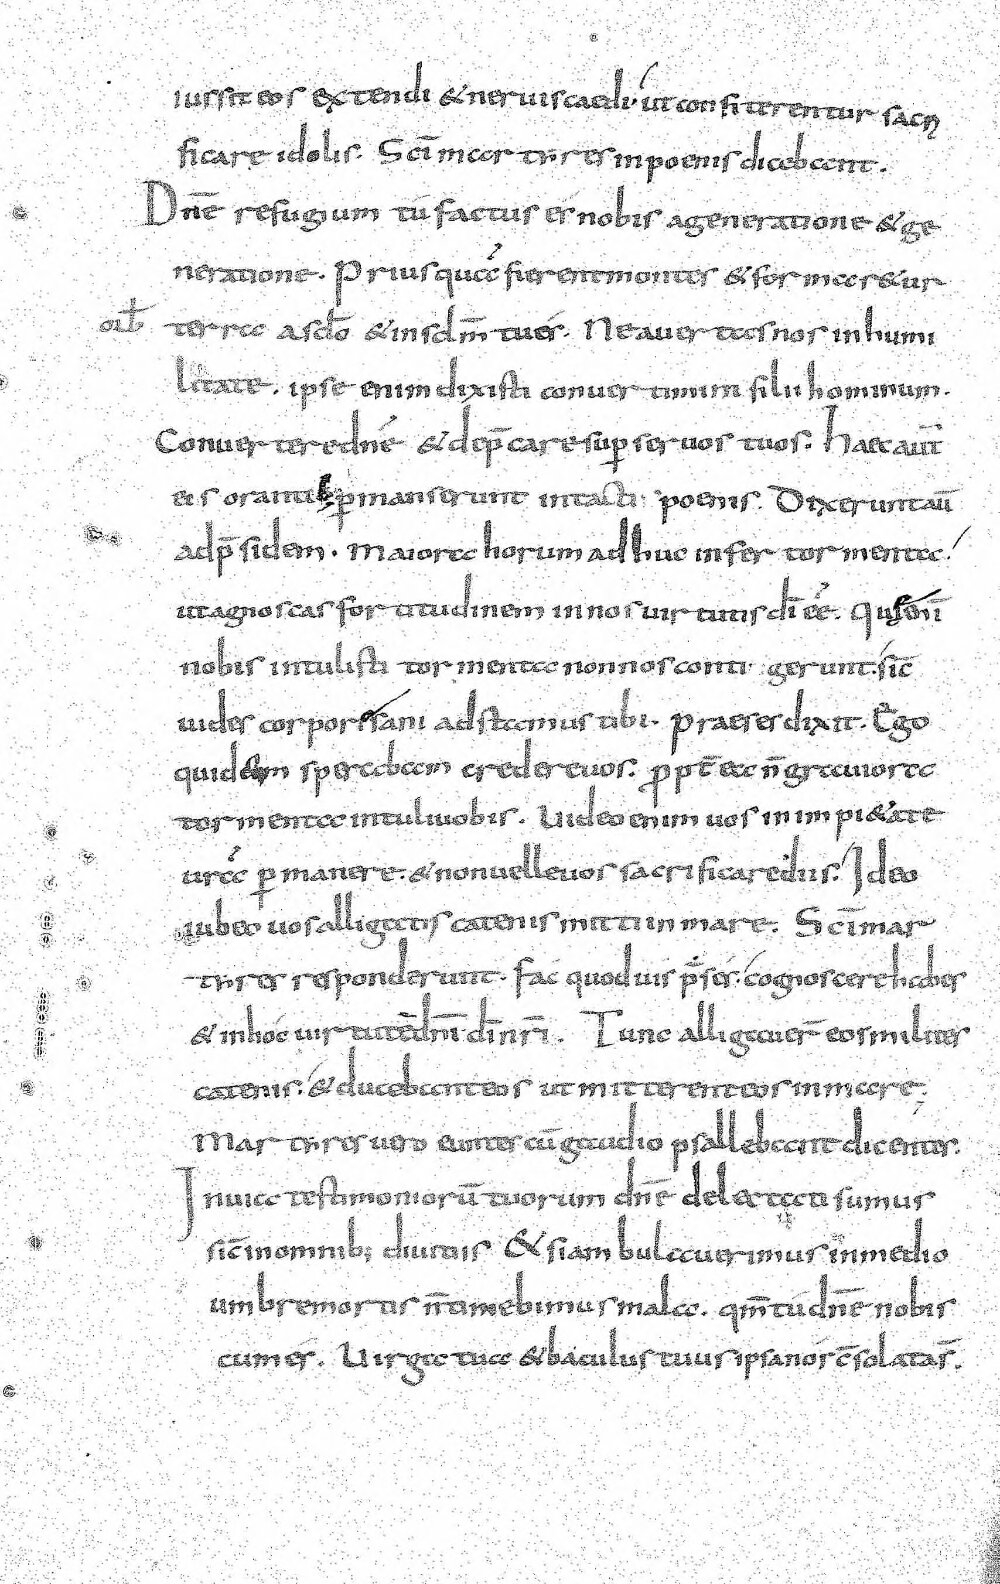 iussit eos extendi & neruis caedi· ut confiterentur sacri
ficare idolis. Scī martyres in poenis dicebant.
Dnē refugium tū factus es nobis a generatione & ge
neratione. Priusquā fierent montes & formar&ur
orb terra a sclō & in sclm̄ tu es. Ne auertas nos in humi
litate. ipse enim dixisti conuertimini filii hominum.
Conuertere dnē & dep̄care sup seruos tuos. Haec aut̄
eis orantib; permanserunt intacti poenis. Dixerunt aū
ad p̄sidem. Maiora horum adhuc infer tormenta.
ut agnoscas fortitudinem in nos uirtutis dī eē. Qus&enī
nobis intulisti tormenta non nos contigerunt. sic̄
uides corpore sani adstamus tibi. Praeses dixit. Ego
quidem sperabam credere uos. ppt̄ ea n̄ grauiora
tormenta intuli uobis. Uideo enim uos in impi&ate
urā pmanere. & non uelle uos sacrificare diis. Ideo
iubeo uos alligatis catenis mitti in mare. Scī mar
tyres responderunt. Fac quod uis p̄ses. cognoscere habes
& in hoc uirtutē dnī dī nrī. Tunc alligauer̄ eos milites
catenis. & ducebant eos ut mitterent eos in mare.
Martyres uero euntes cū gaudio psallebant dicentes.
In uia testimoniorū tuorum dnē delectati sumus
sic̄ in omnib; diuitiis & si ambulauerimus in medio
umbre mortis n̄ timebimus mala. qm̄ tu dnē nobis
cum es. Uirga tua & baculus tuus ipsa nos c̄solata s̄.